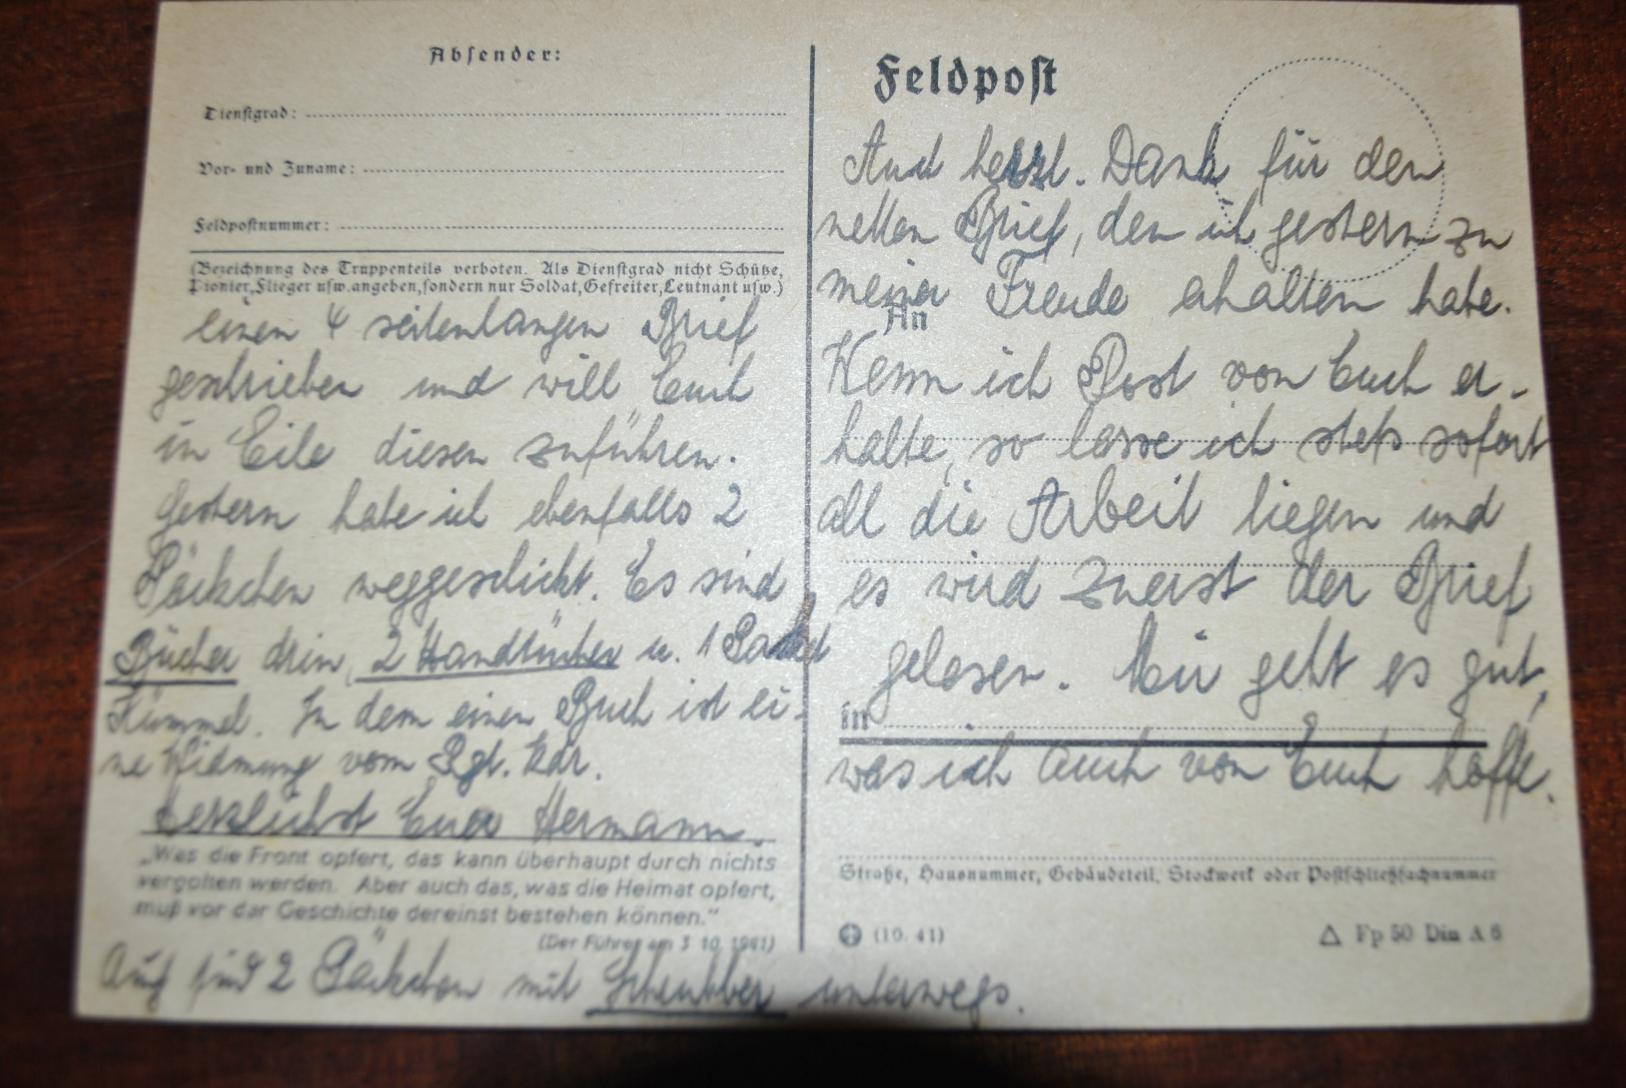 Absender:
Dienstgrad:
Vor- und Zuname:
Feldpostnummer:
(Bezeichnung des Truppenteils verboten. Als Dienstgrad nicht Schütze,
Pionier, Flieger usw. angeben, sondern nur Soldat, Gefreiter, Leutnant usw.)
einen 4 seitenlangen Brief
geschrieben und will Euch
in Eile diesen zuführen.
Gestern habe ich ebenfalls 2
Päckchen weggeschickt. Es sind
Bücher drin, 2 Handtücher u. 1 Paket
Kümmel. In dem einen Buch ist ei-
ne Widmung vom Rgt. Kdr.
Herzlichst Euer Hermann.
„Was die Front opfert, das kann überhaupt durch nichts
vergolten werden. Aber auch das, was die Heimat opfert,
muß vor der Geschichte dereinst bestehen können.“
(Der Führer am 3. 10. 1941)
Auch sind 2 Päckchen mit unterwegs.
Feldpost
Auch herzl. Dank für den
netten Brief, den ich gestern zu
meiner Freude erhalten habe.
An
Wenn ich Post von Euch er-
halte, so lasse ich stets sofort
all die Arbeit liegen und
es wird zuerst der Brief
gelesen. Mir geht es gut,
in
was ich auch von Euch hoffe.
Straße, Hausnummer, Gebäudeteil, Stockwerk oder Postschließfachnummer
(10. 41)
Fp 50 Din A 6